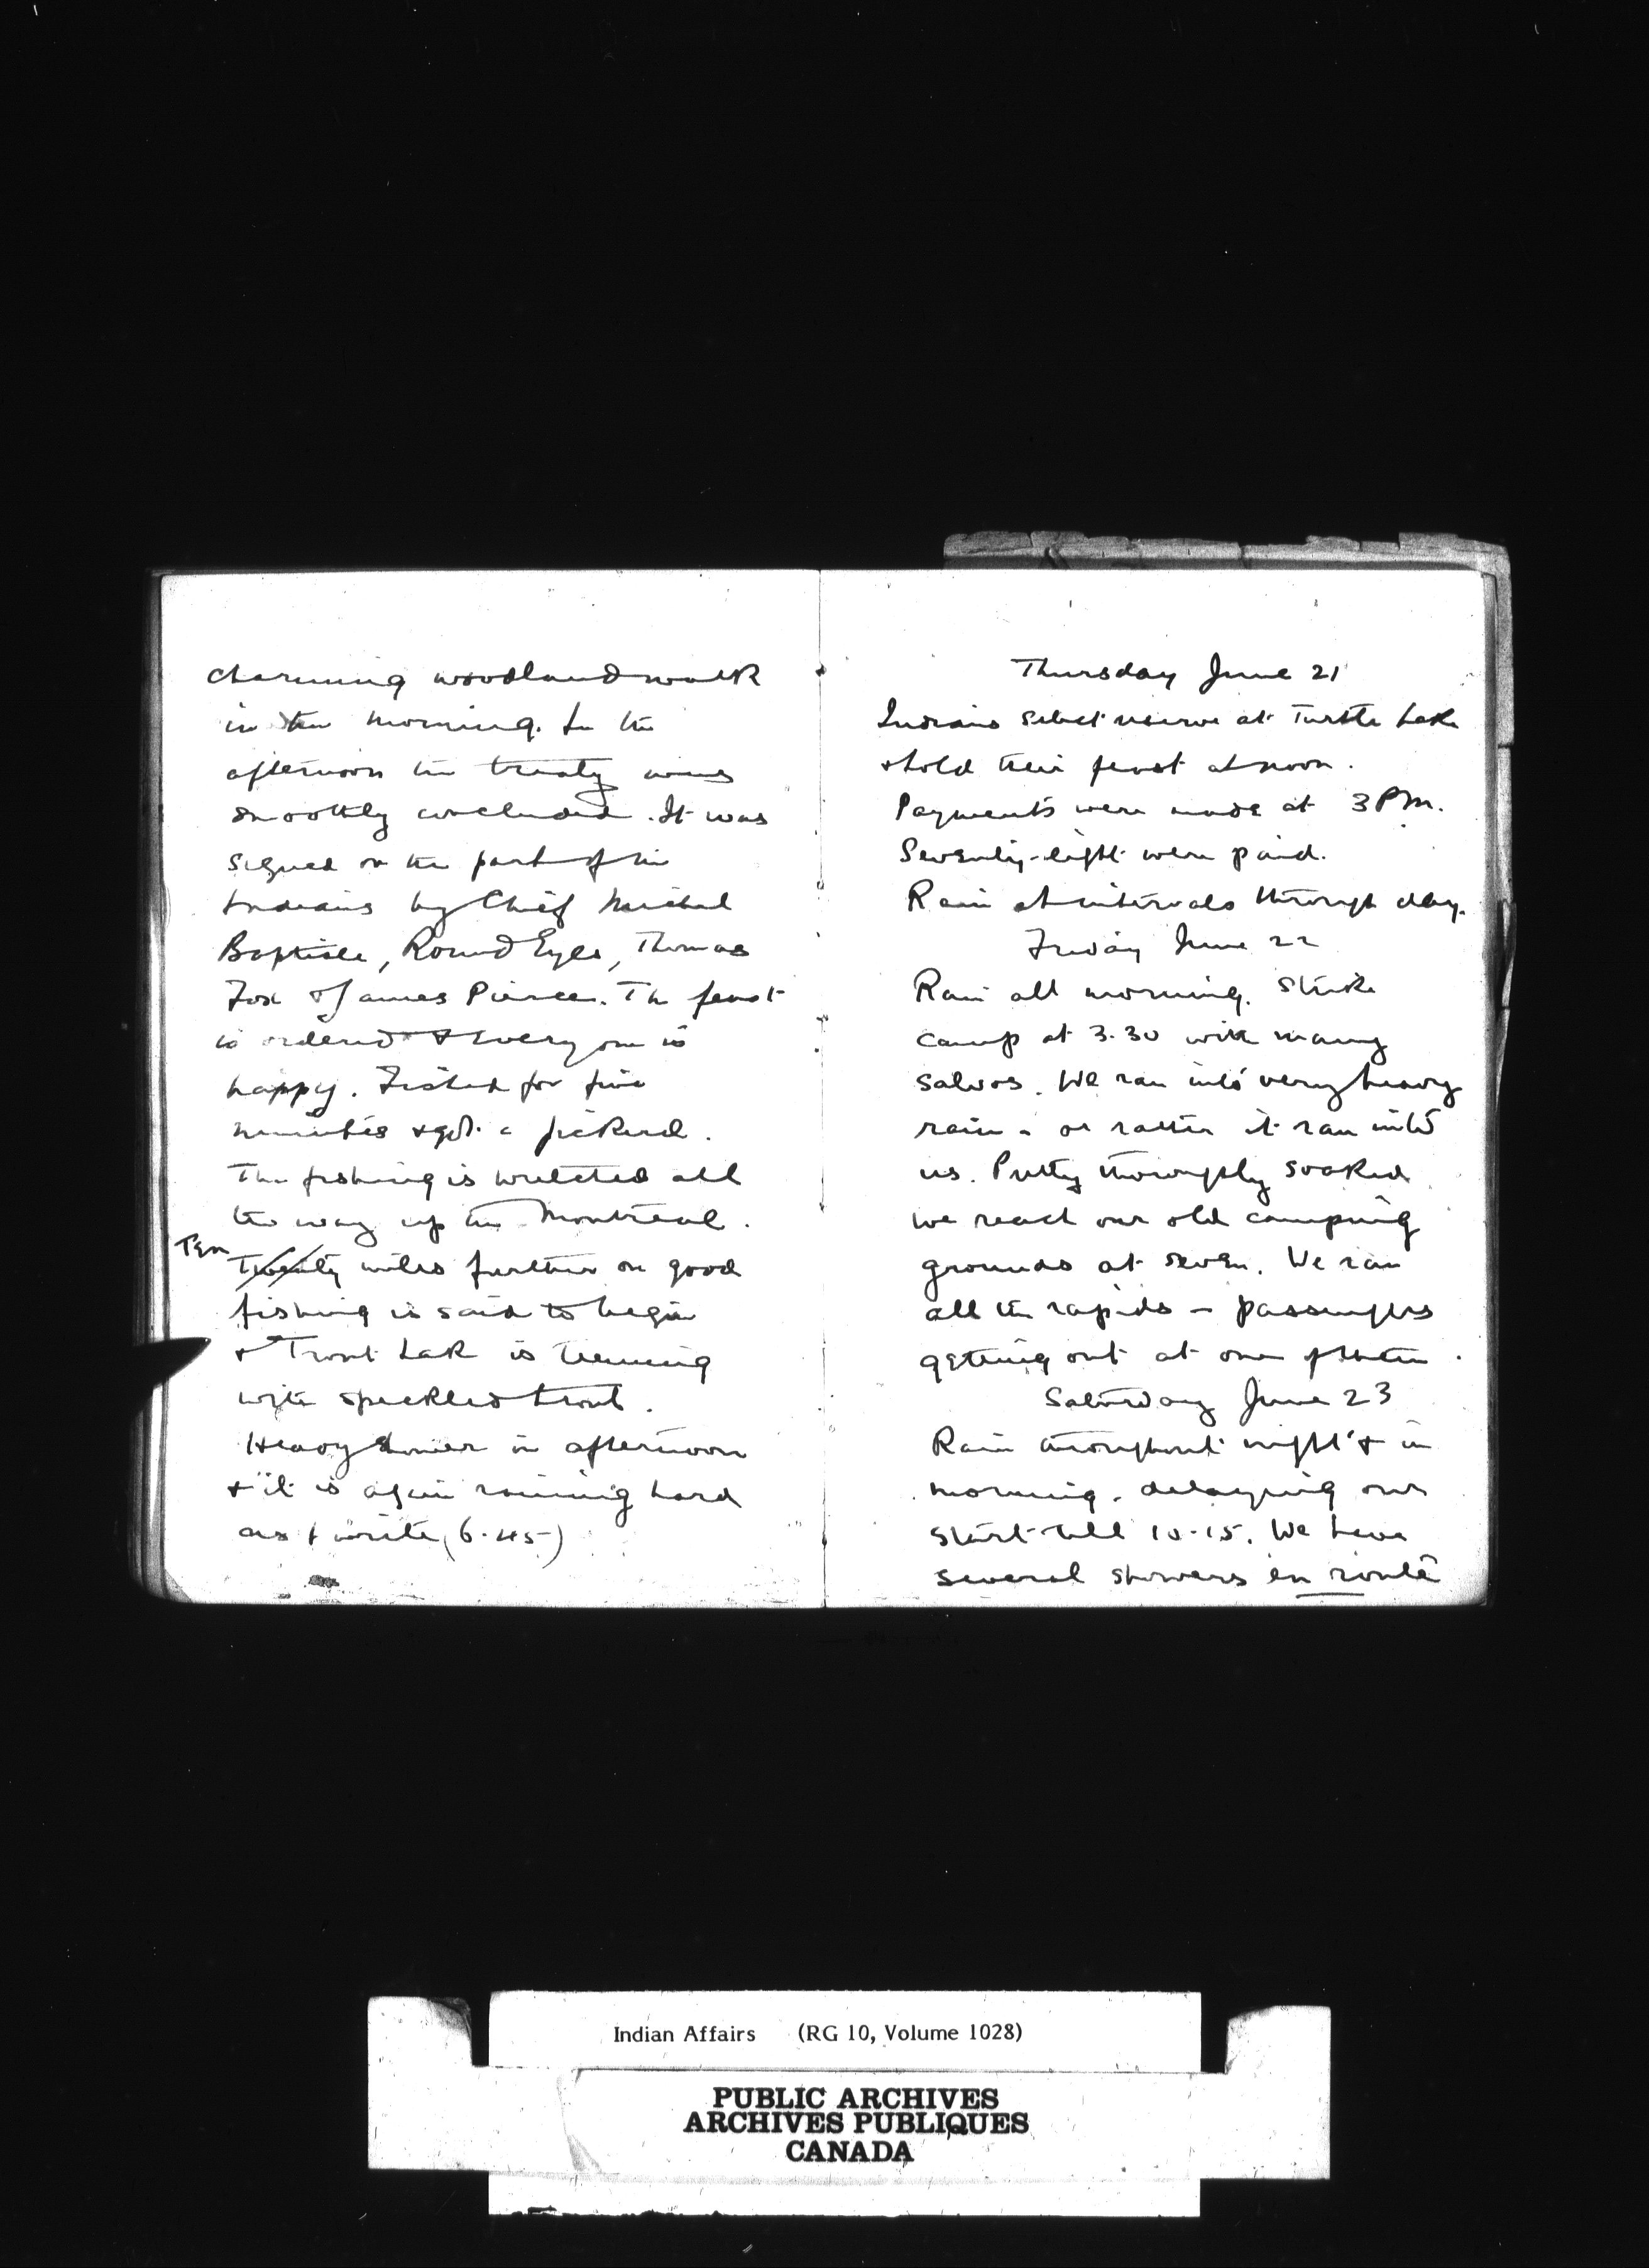 charming woodland walk
in the morning. In the
afternoon the treaty was
smoothly concluded. It was
signed on the part of the
Indians by Chief Michel
Baptiste, Round Eyes, Thomas
Fox & James Pierce. The feast
is ordered & everyone is
happy. Fished for five
minutes & got a pickerel.
The fishing is wretched all
the way up the Montreal.
Ten
Twenty miles further on good
fishing is said to begin
& Trout Lake is teeming
with speckled trout.
Heavy shower in afternoon
& it is again raining hard
as I write (6.45)
Thursday June 21
Indians select reserve at Turtle Lake
& hold their feast at noon.
Payments were made at 3 P.M.
Seventy-eight were paid.
Rain at intervals through day.
Friday June 22
Rain all morning. Strike
camp at 3.30 with many
salvos. We ran into very heavy
rain - or rather it ran into
us. Pretty thoroughly soaked
we reach our old camping
grounds at seven. We ran
all the rapids - passengers
getting out at one of them.
Saturday June 23
Rain throughout night & in
morning, delaying our
start till 10-15. We have
several showers en route
Indian Affairs (RG 10, Volume 1028)
PUBLIC ARCHIVES
ARCHIVES PUBLIQUES
CANADA